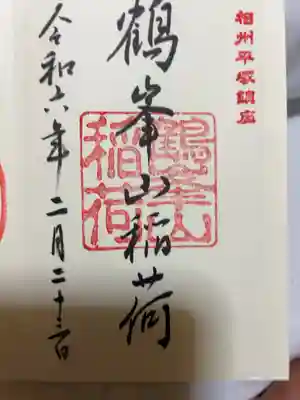 相州平塚鎮座
鶴峯山稲荷
鶴峯山
稲荷
令和六年二月二十二日